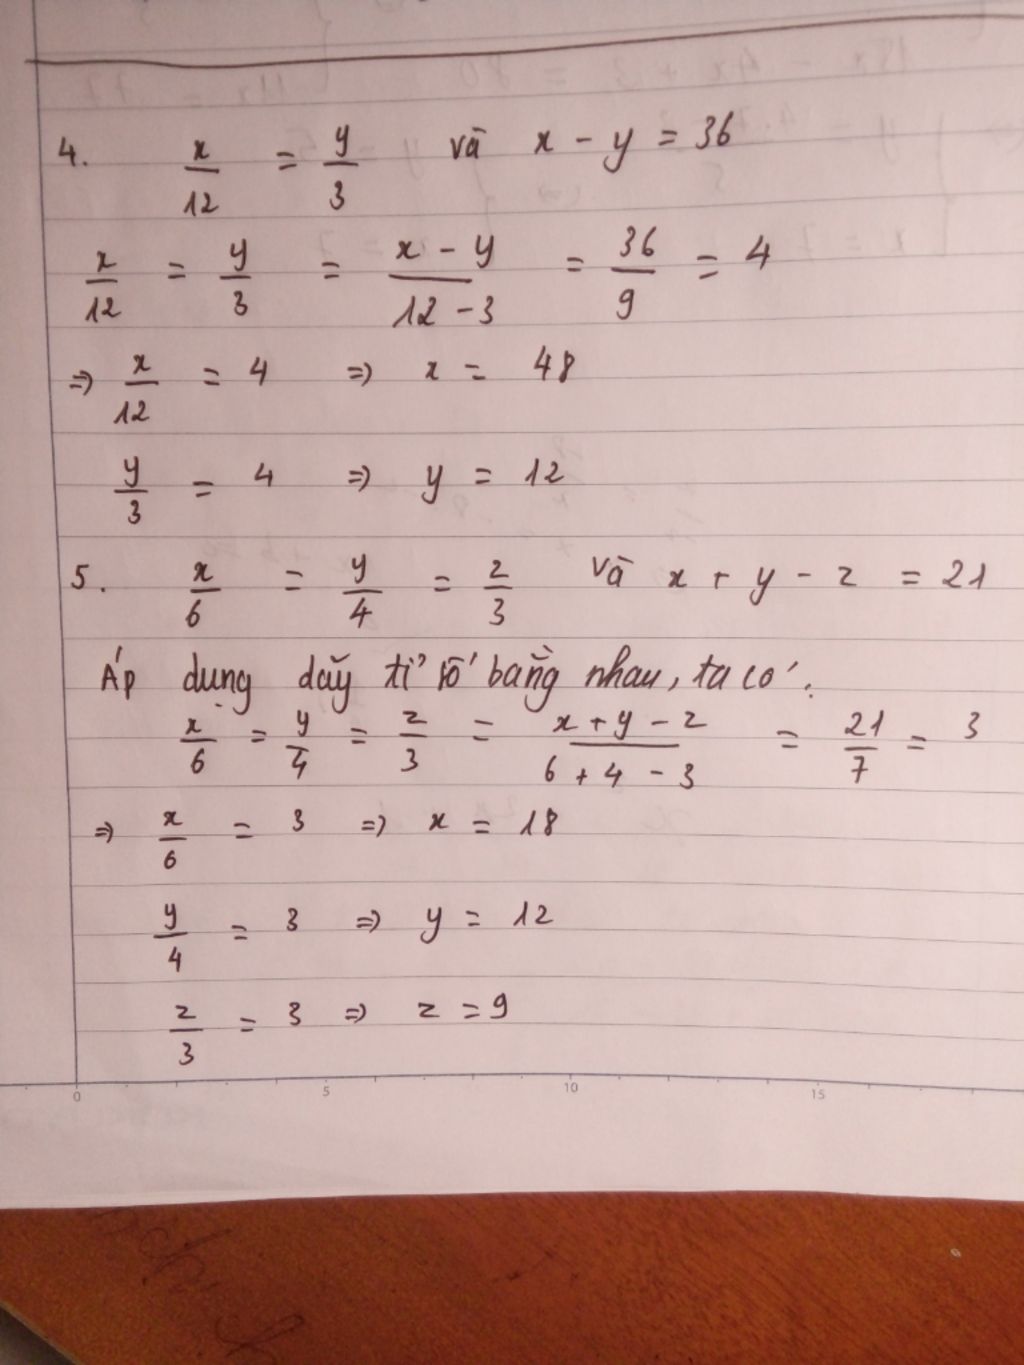 4. x/12 = y/3 và x - y = 36
x/12 = y/3 = (x - y)/(12 - 3) = 36/9 = 4
=> x/12 = 4 => x = 48
y/3 = 4 => y = 12
5. x/6 = y/4 = z/3 và x + y - z = 21
Áp dụng dãy tỉ số bằng nhau, ta có:
x/6 = y/4 = z/3 = (x + y - z)/(6 + 4 - 3) = 21/7 = 3
=> x/6 = 3 => x = 18
y/4 = 3 => y = 12
z/3 = 3 => z = 9
0 5 10 15